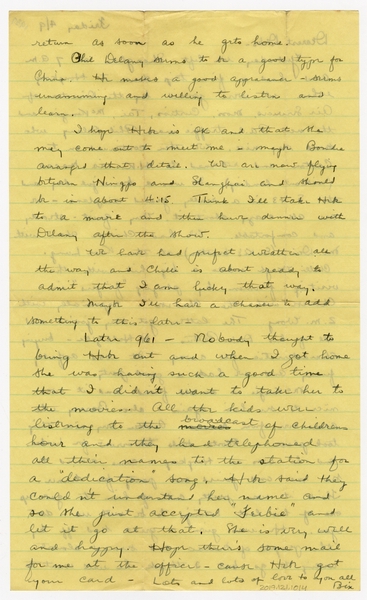 return as soon as he gets home.
Phil Delany seems to be a good type for
China. He makes a good appearance - seems
unassuming and willing to listen and
learn.
I hope Hebe is OK and that she
may come out to meet me - maybe Bonnie
arranged that detail. We are now flying
between Ningpo and Shanghai and should
be in about 4:15. Think I'll take Hebe
to a movie and then have dinner with
Delany after the show.
We have had perfect weather all
the way and Chilie is about ready to
admit that I am lucky that way.
Maybe I'll have a chance to add
something to this later -
Later 961 - Nobody thought to
bring Hebe out and when I got home
she was having such a good time
that I didn't want to take her to
the movies. All the kids were
listening to the broadcast of childrens
hour and they had telephoned
all their names to the station for
a "dedication" song. Hebe said they
couldn't understand her name and
so she just accepted "Feebie" and
let it go at that. She is very well
and happy. Hope theirs some mail
for me at the office - cause Hebe got
your card - Lots and lots of love to you all
Bix